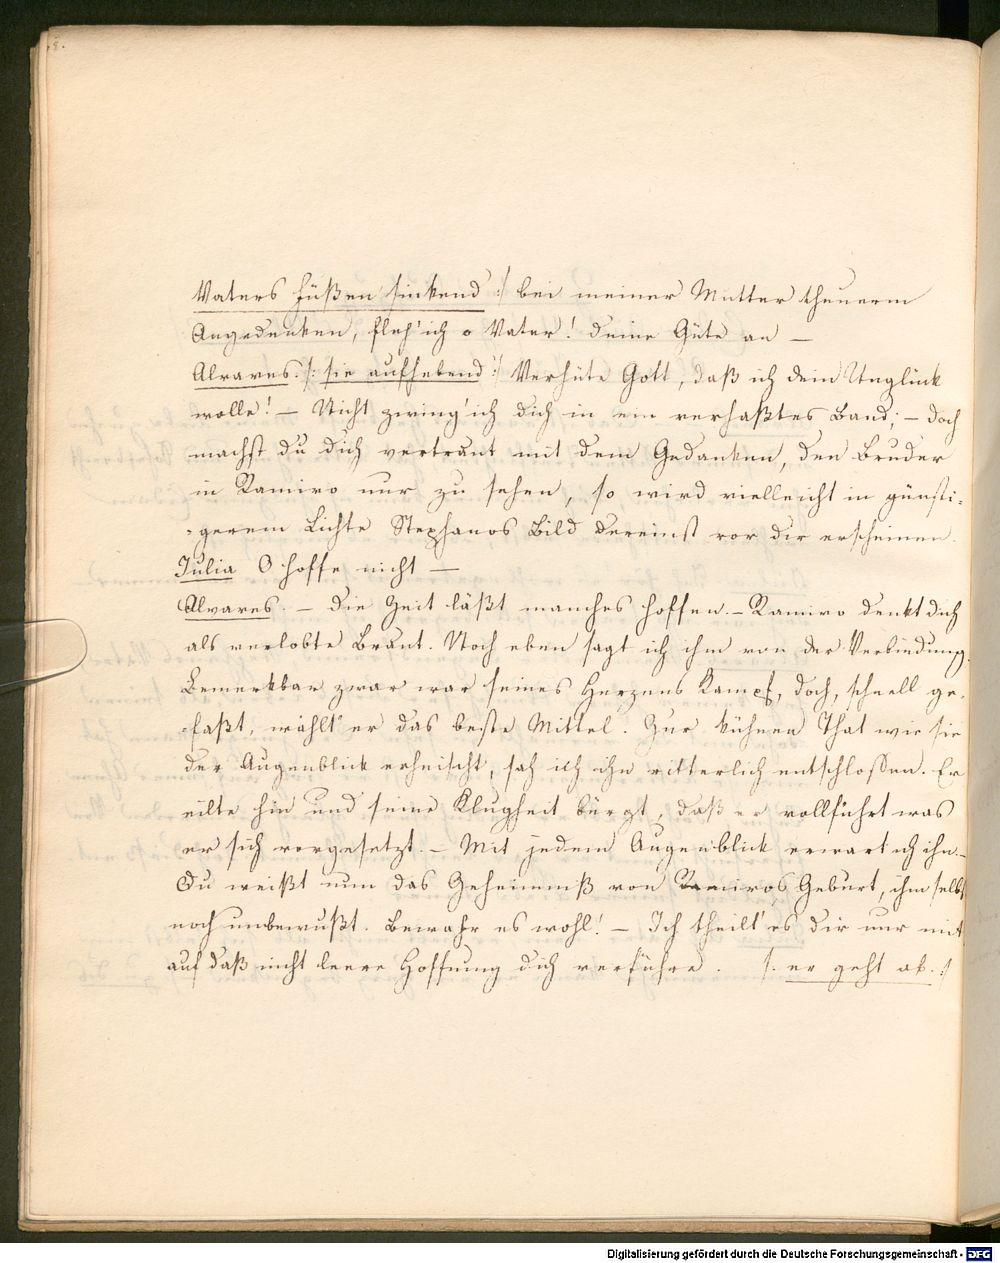 8.
Vaters füßen sinkend :/ bei meiner Mutter theuerm
Angedenken, fleh' ich o Vater! deine Güte an —
Alvares. /: sie aufhebend :/ Verhüte Gott, daß ich dein Unglück
wolle! — Nicht zwing' ich dich in ein verhaßtes Band; — doch
machst du dich vertraut mit dem Gedanken, den Bruder
in Ramiro nur zu sehen, so wird vielleicht in günsti-
-gerem Lichte Stephanos Bild dereinst vor dir erscheinen.
Julia O hoffe nicht —
Alvares. — Die Zeit läßt manches hoffen. — Ramiro denkt dich
als verlobte Braut. Noch eben sagt ich ihm von der Verbindung.
Bemerkbar zwar war seines Herzens Kampf, doch, schnell ge-
-faßt, wählt' er das beste Mittel. Zur kühnen That wie sie
der Augenblick erheischt, sah ich ihn ritterlich entschlossen. Er
eilte hin und seine Klugheit bürgt, daß er vollführt was
er sich vorgesetzt. — Mit jedem Augenblick erwart ich ihn. —
Du weißt nun das Geheimniß von Ramiros Geburt, ihm selbst
noch unbewußt. Bewahr es wohl! — Ich theilt' es dir nur mit
auf daß nicht leere Hoffnung dich verführe. /: er geht ab. :/
Digitalisierung gefördert durch die Deutsche Forschungsgemeinschaft - DFG